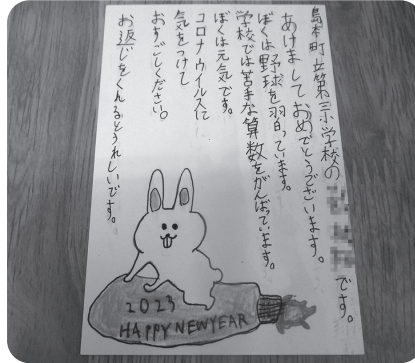 島本町立第三小学校の です。
あけましておめでとうございます。
ぼくは野球を習っています。
学校では苦手な算数をがんばっています。
ぼくは元気です。
コロナウイルスに
気をつけて
おすごしください。
お返じをくれるとうれしいです。
2023
HAPPY NEWYEAR